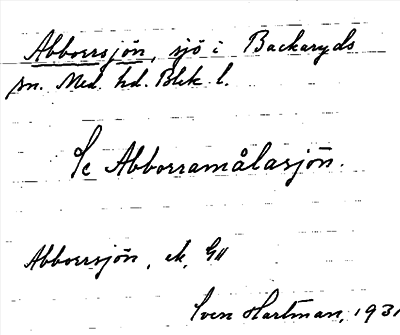 Abborrsjön, sjö i Backaryds
sn. Med. hd. Blek. l.
Se Abborramålasjön.
Abborrsjön, ek, GII
Sven Hartman, 1931